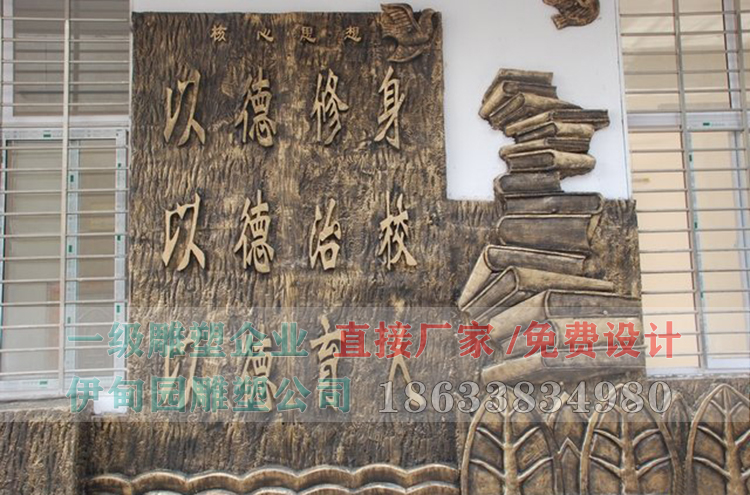 核心思想
以德修身
以德治校
以德育人
一级雕塑企业 直接厂家/免费设计
伊甸园雕塑公司 18633834980